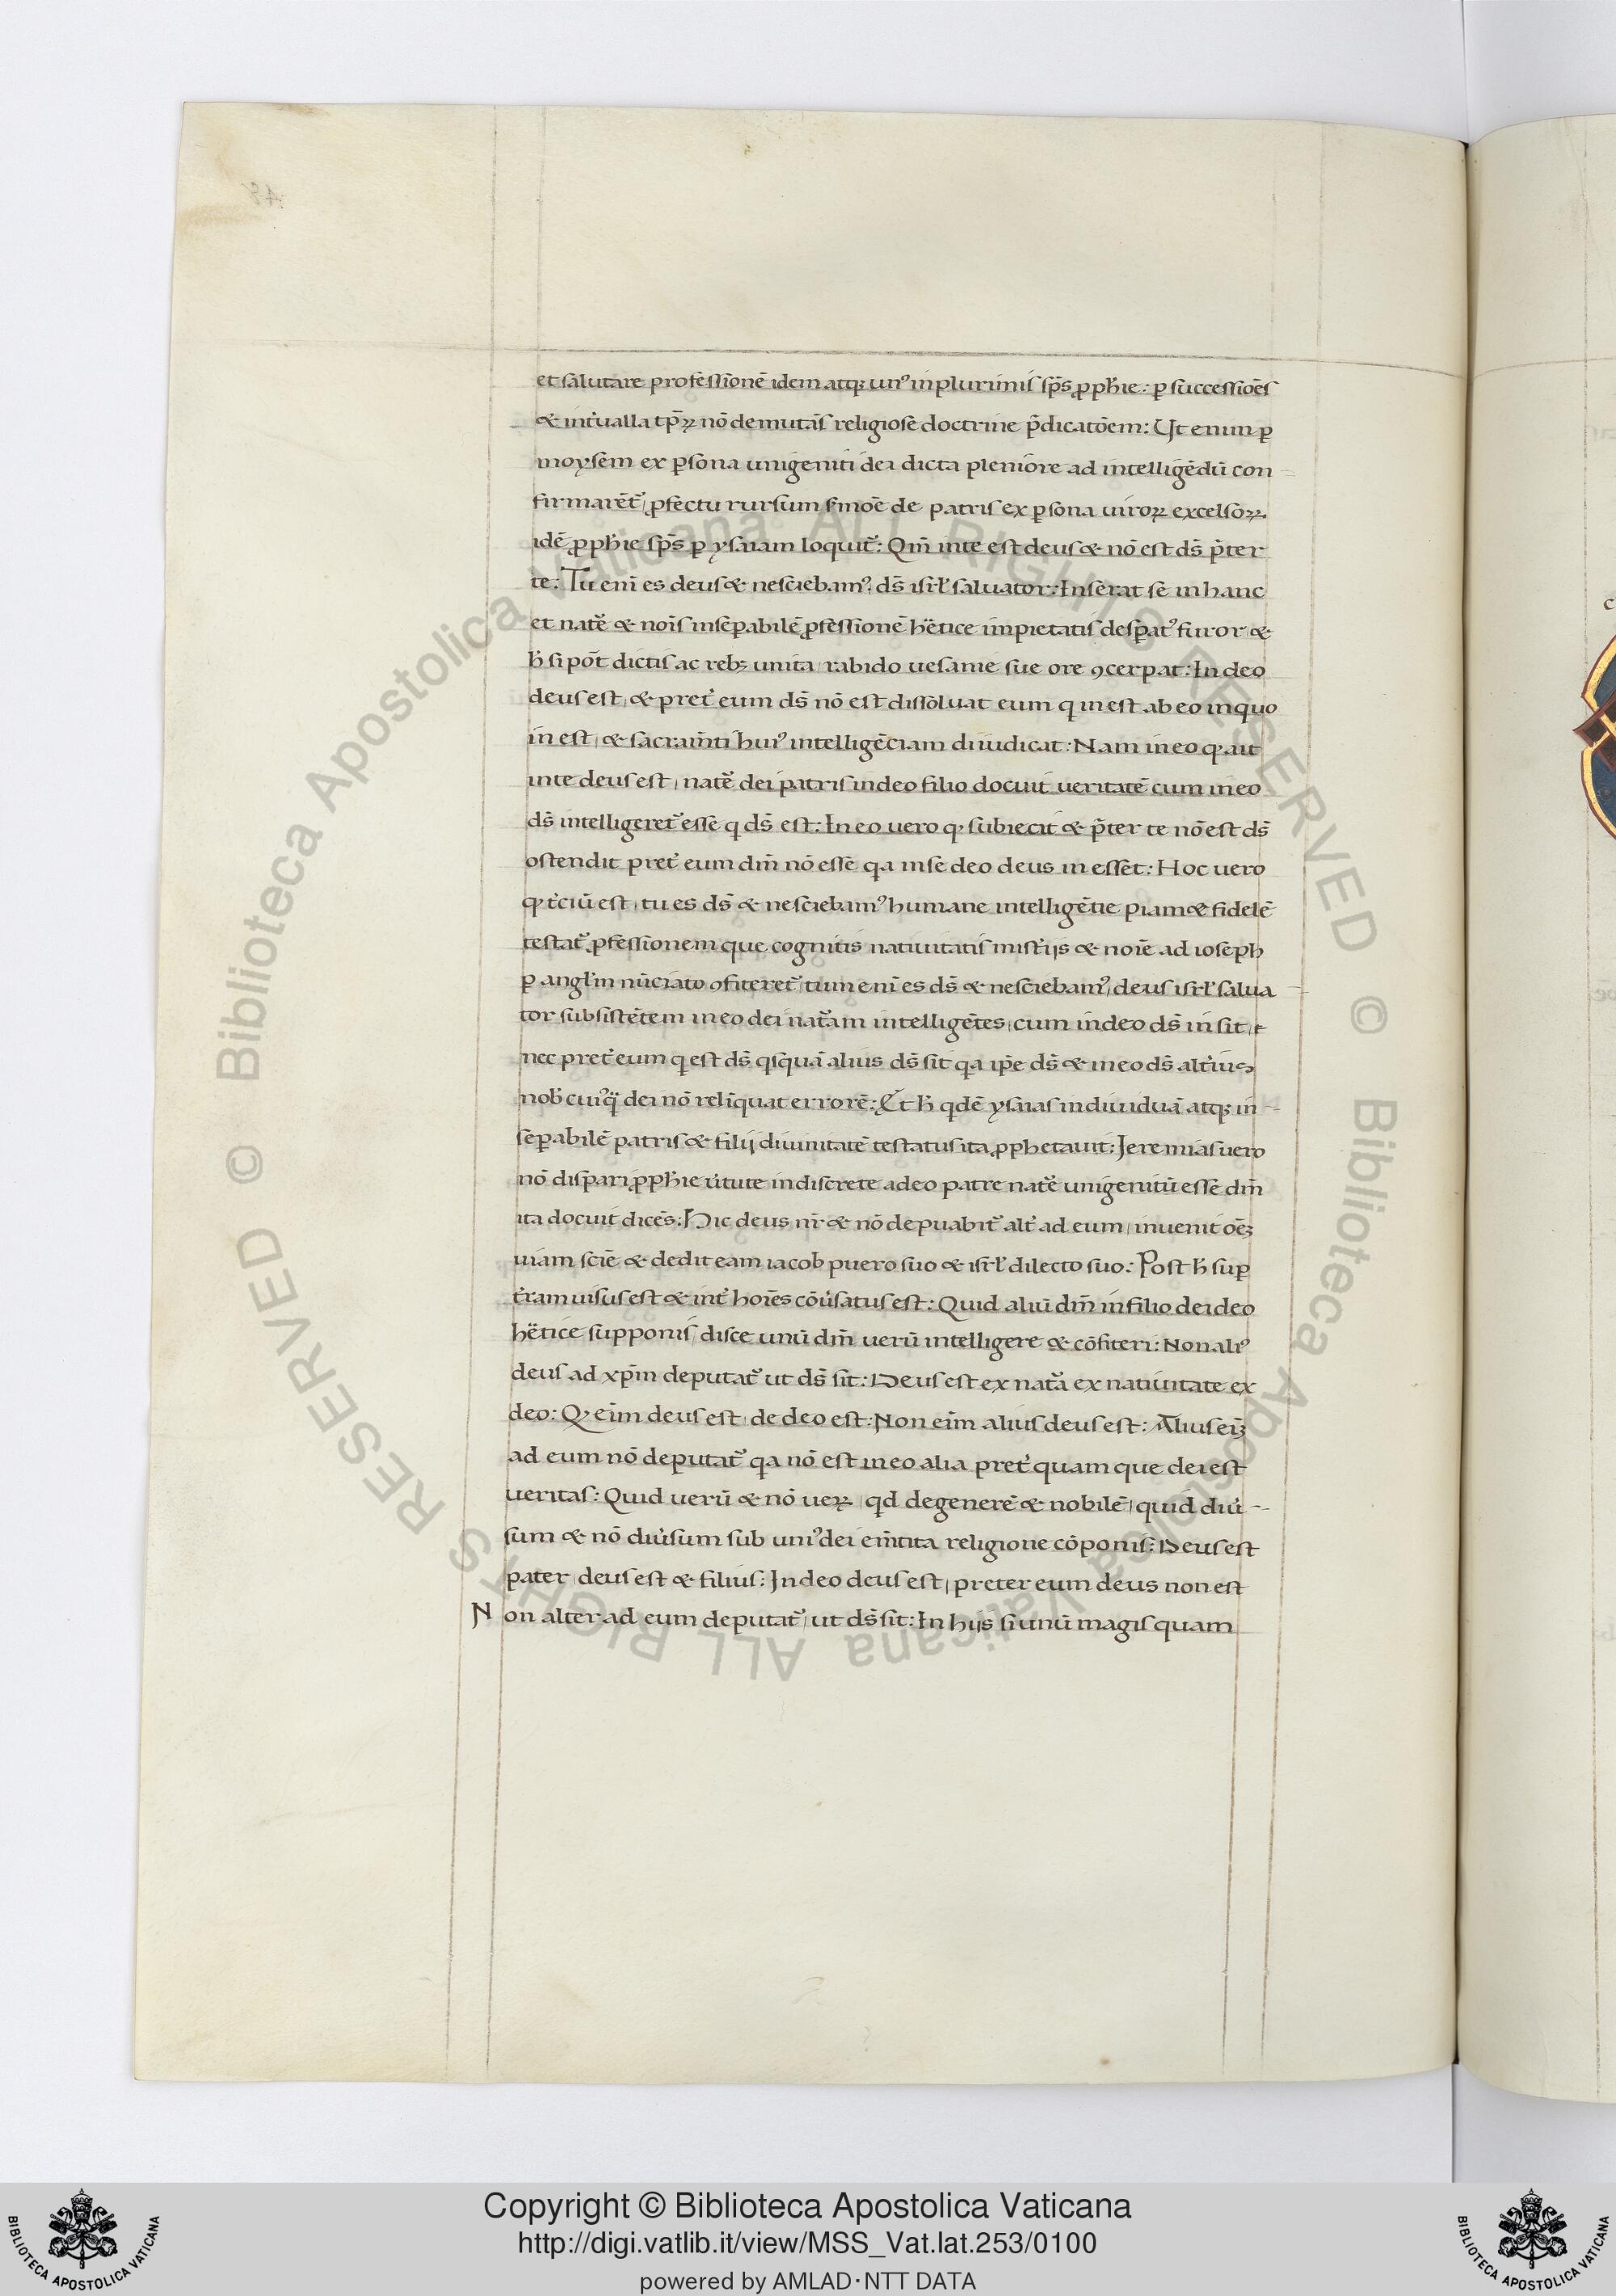 et salutare professionē idem atq; un⁹ in plurimis sp̄s ꝓph'ie: ꝑ successiōes
& int'ualla tp̄ꝝ nō demutās religiose doctrine p̄dicatōem: Ut enim ꝑ
moysem ex ꝑsona unigeniti dei dicta pleniore ad intelligēdū con
firmarēt᷑ ꝓfectu rursum s'moē de patris ex ꝑsona uiroꝝ excelsōꝝ.
idē ꝓph'ie sp̄s ꝑ ysaiam loquit᷑: Qm̄ in te est deus & nō est ds̄ p̄ter
te: Tu eni es deus & nesciebam⁹ ds̄ isrl' saluator: Inserat se in hanc
et nat᷑e & noīs insepabilē ꝓfessionē h'etice impietatis despat⁹ furor &
h' si pōt dictis ac reb; unita rabido uesanie sue ore ꝯcerpat: In deo
deus est, & pret' eum ds̄ nō est dissoluat eum q inest ab eo in quo
in est, & sacram̄ti hui⁹ intelligēciam diuidicat: Nam in eo qꝫ ait
in te deus est, nat᷑e dei patris in deo filio docuit ueritatē cum in eo
ds̄ intelligeret᷑ esse q ds̄ est: In eo uero qꝫ subiecit & p̄ter te nō est ds̄
ostendit pret' eum dm̄ nō esse qa in se deo deus in esset: Hoc uero
qꝫ t'ciū est, tu es ds̄ & nesciebam⁹ humane intelligētie piam & fidelē
testat᷑ ꝓfessionem que cognitis natiuitatis mist'ijs & noīe ad ioseph
ꝑ angl'm nūciato ꝯfiteret᷑ tum eni es ds̄ & nesciebam⁹, deus isrl' salua
tor subsistētem in eo dei nat᷑am intelligētes, cum in deo ds̄ in sit,
nec pret' eum q est ds̄ qsquā alius ds̄ sit qa ip̄e ds̄ & in eo ds̄ alt'ius
nob' cui⁹q dei nō relīquat errorē: Et h' qdē ysaias indiuiduā atq; in
sepabilē patris & filij diuinitatē testatus ita ꝓphetauit: Jeremias uero
nō dispari ꝓph'ie u'tute indiscrete a deo patre nat᷑e unigenitū esse dm̄
ita docuit dicēs: Hic deus nr̄ & nō depuabit᷑ alt' ad eum, inuenit oēꝫ
uiam sciē & dedit eam iacob puero suo & isrl' dilecto suo: Post h' suꝑ
t'ram uisus est & int' hoīes cōu'satus est: Quid aliū dm̄ in filio dei deo
h'etice supponis, disce unū dm̄ uerū intelligere & cōfiteri: Non ali⁹
deus ad xp̄m deputat᷑ ut ds̄ sit: Deus est ex nat᷑a ex natiuitate ex
deo: Qꝫ eīm deus est, de deo est: Non eīm alius deus est: Alius eīꝫ
ad eum nō deputat᷑ qa nō est in eo alia pret' quam que dei est
ueritas: Quid uerū & nō ueꝝ, qd degenerē & nobilē, quid diu'
sum & nō diu'sum sub uni⁹ dei em̄tita religione cōponis: Deus est
pater, deus est & filius: In deo deus est, preter eum deus non est
Non alter ad eum deputat᷑, ut ds̄ sit: In hijs si unū magis quam
Copyright © Biblioteca Apostolica Vaticana
http://digi.vatlib.it/view/MSS_Vat.lat.253/0100
powered by AMLAD·NTT DATA
BIBLIOTECA APOSTOLICA VATICANA
BIBLIOTECA APOSTOLICA VATICANA
© Biblioteca Apostolica Vaticana ALL RIGHTS RESERVED
© Biblioteca Apostolica Vaticana ALL RIGHTS RESERVED